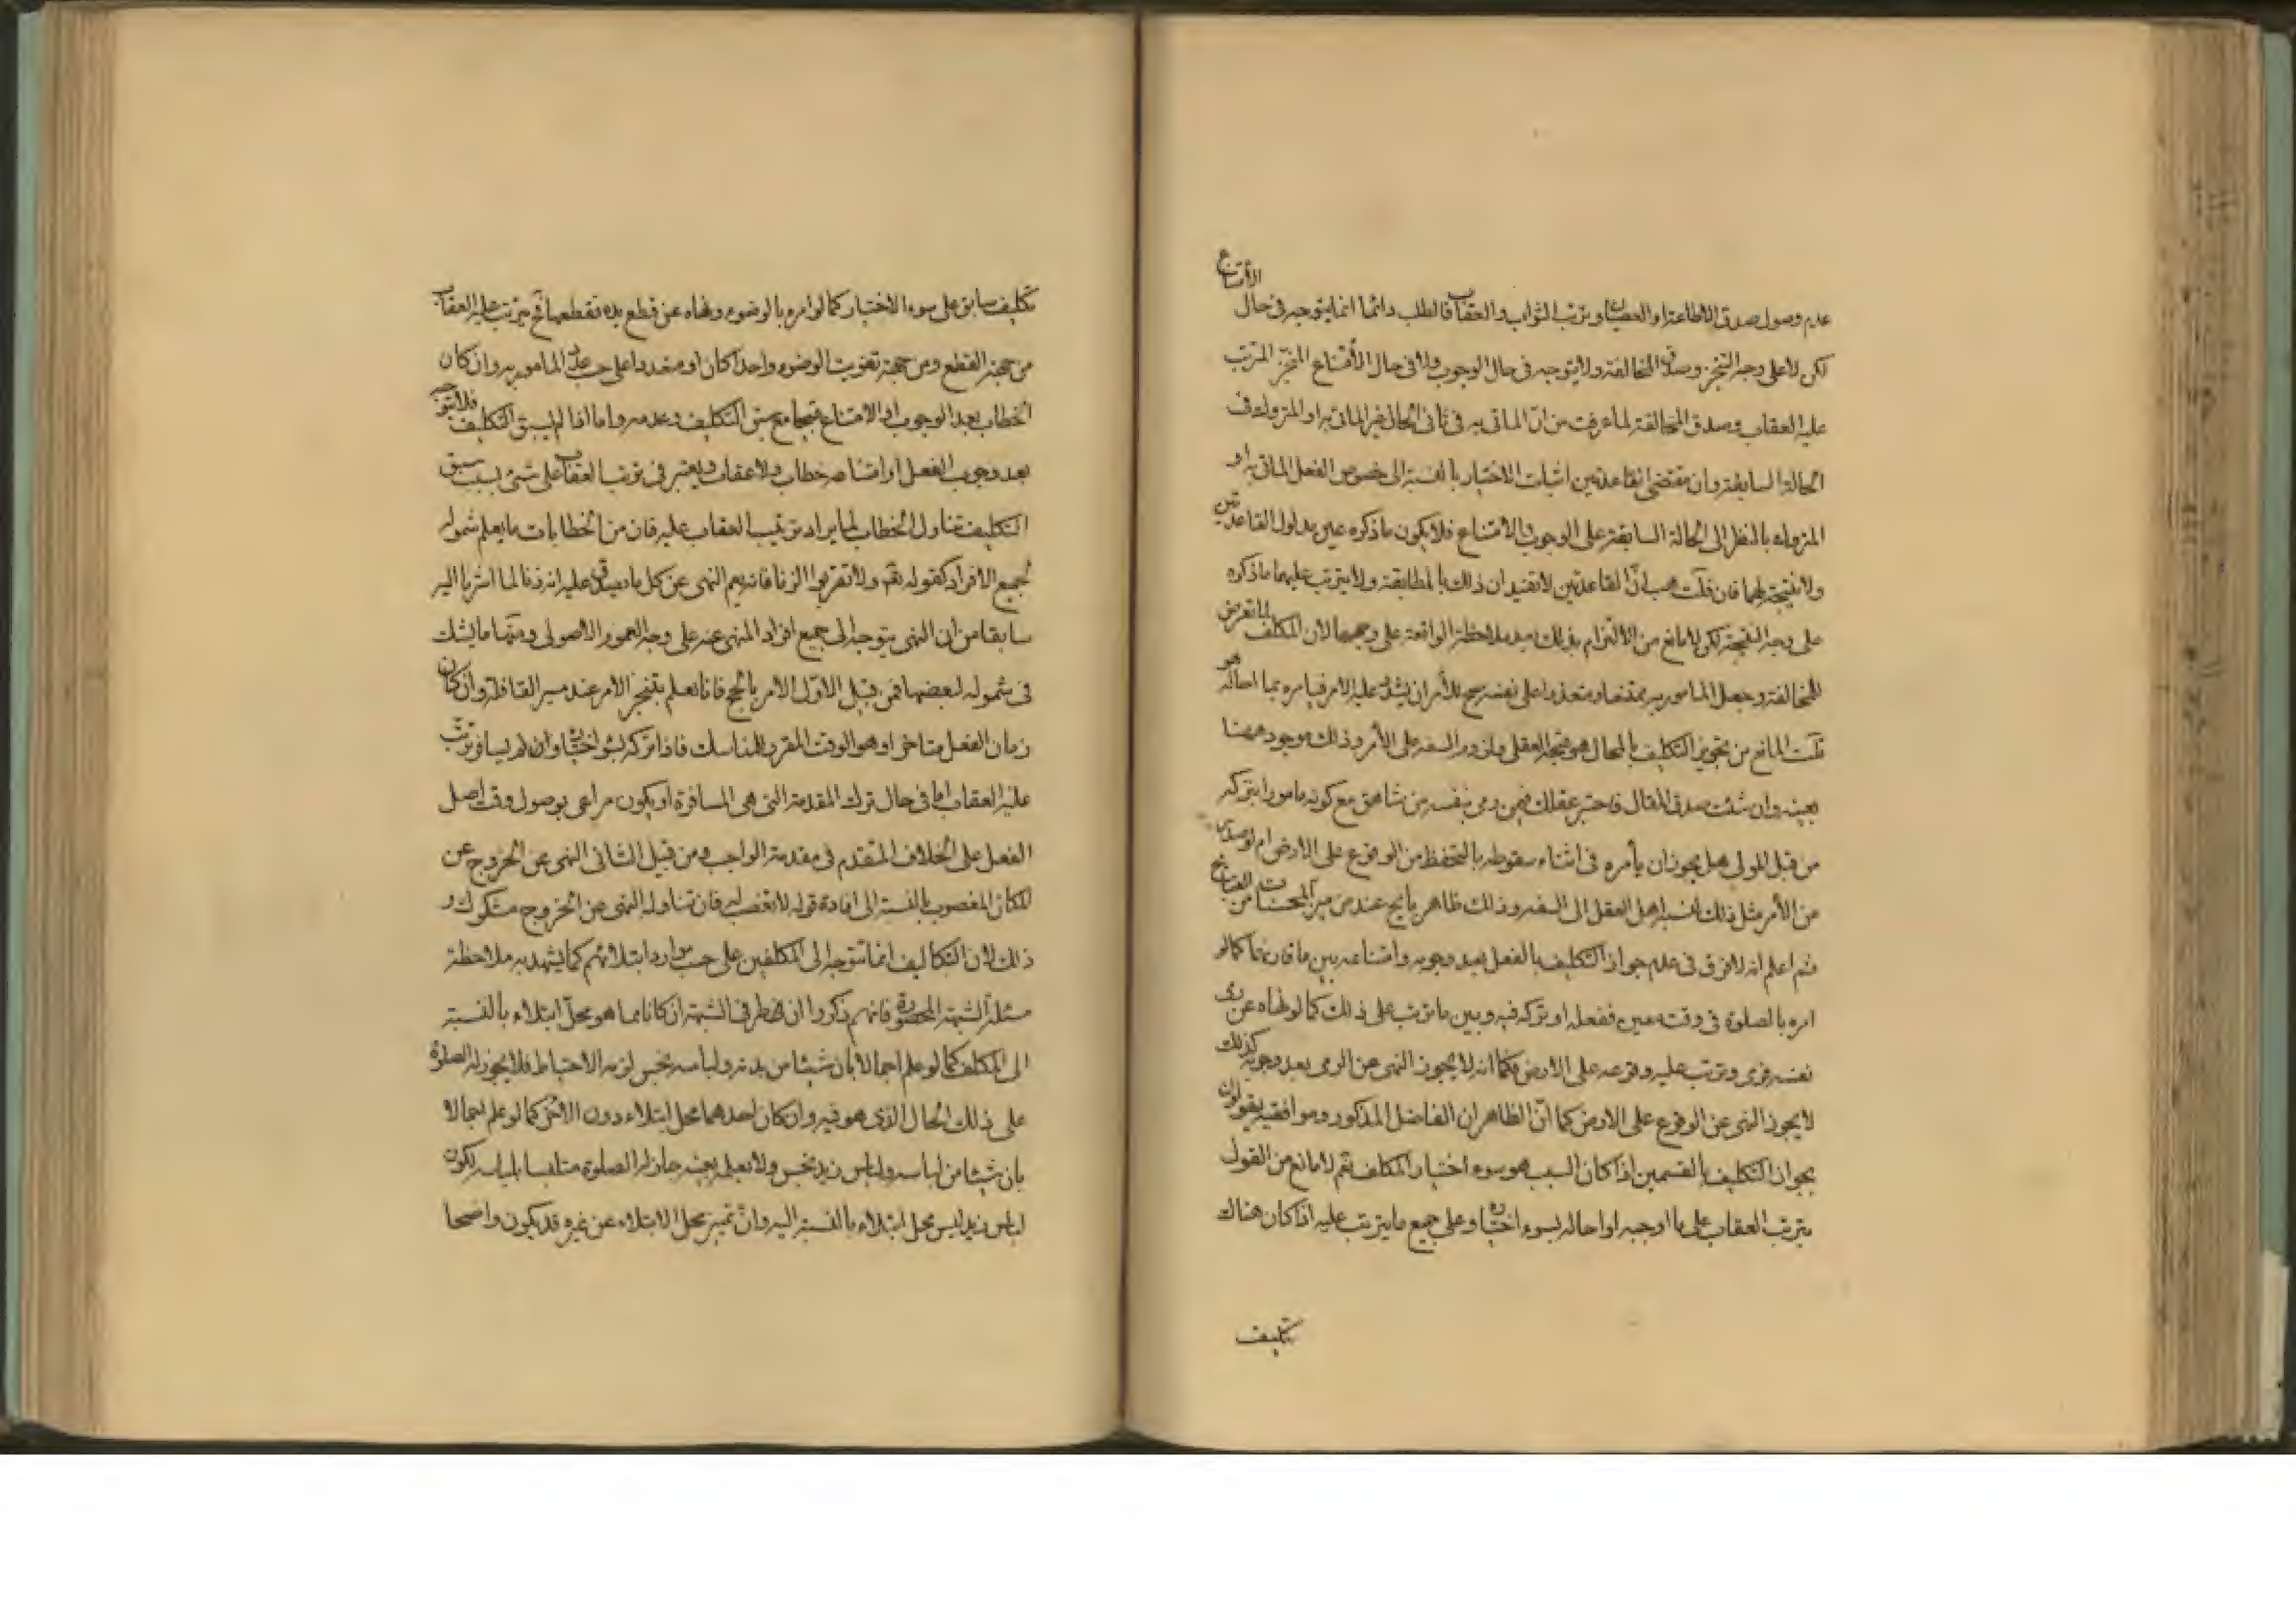 عدم وصول صدق الاطاعة او العصيان وترتب الثواب والعقاب فالطلب دائما انما يتوجه في حال الامتناع
لكن لا على وجه التنجز وصدق المخالفة ولا يتوجه في حال الوجوب ولا في حال الامتناع المنجز المترتب
عليه العقاب وصدق المخالفة لما عرفت من ان الماتى به في ثانى الحال غير الماتى به او المتروك في
الحالة السابقة وان مقتضى القاعدتين اثبات الاختيار بالنسبة الى خصوص الفعل الماتى به او
المتروك بالنظر الى الحالة السابقة على الوجوب والامتناع فلا يكون ما ذكره عين مدلول القاعدتين
ولا نتيجة لهما فان قلت هب ان القاعدتين لا تفيدان ذلك بالمطابقة ولا يترتب عليهما ما ذكره
على وجه النتيجة لكن لا مانع من الالتزام بذلك بعد ملاحظة الواقعة على وجهها لان المكلف لما تعرض
للمخالفة وجعل المامور به ممتنعا ومتعذرا على نفسه صح للآمر ان يشدد عليه الامر فيامره بما احاله هو
قلت المانع من تجويز التكليف بالمحال هو قبحه العقلى ولزوم السفه على الآمر وذلك موجود ههنا
بعينه وان شئت صدق المقال فاختبر عقلك فيمن رمى بنفسه من شاهق مع كونه مامورا بتركه
من قبل المولى هل يجوز ان يأمره في اثناء سقوطه بالتحفظ من الوقوع على الارض ام لو صدر
من الآمر مثل ذلك نسبه اهل العقل الى السفه وذلك ظاهر
ثم اعلم انه لا فرق في عدم جواز التكليف بالفعل بعد وجوبه وامتناعه بين ما قارنهما كما لو
امره بالصلوة في وقت معين ففعله او تركه فيه وبين ما ترتب على ذلك كما لو نهاه عن رمى
نفسه فرمى وترتب عليه وقوعه على الارض فكما انه لا يجوز النهى عن الرمى بعد وجوبه كذلك
لا يجوز النهى عن الوقوع على الارض كما ان الظاهر ان الفاضل المذكور وموافقيه يقولون
بجواز التكليف بالقسمين اذا كان السبب هو سوء اختيار المكلف نعم لا مانع من القول
بترتب العقاب على ما اوجبه او احاله بسوء اختياره وعلى جميع ما يترتب عليه اذا كان هناك
تكليف
تكليف سابق على سوء الاختيار كما لو امره بالوضوء ونهاه عن قطع يده فقطعها فح يترتب عليه العقاب
من جهة القطع ومن جهة تفويت الوضوء واحدا كان او متعددا على حسب عدد المامور به وان كان
الخطاب بعد الوجوب او الامتناع قبيحا مع سبق التكليف وعدمه واما اذا لم يسبق التكليف فلا يتوجه
بعد وجوب الفعل او امتناعه خطاب ولا عقاب ويعتبر في ترتب العقاب على شئ بسبب سبق
التكليف تناول الخطاب لما يراد ترتيب العقاب عليه فان من الخطابات ما يعلم شموله
لجميع الافراد كقوله تعه ولا تقربوا الزنا فانه يعم النهى عن كل ما يصدق عليه انه زنا لما اشرنا اليه
سابقا من ان النهى يتوجه الى جميع افراد المنهى عنه على وجه العموم الاصولى ومنها ما يشك
في شموله لبعضها فمن قبيل الاول الامر بالحج فانا نعلم بتنجز الامر عند مسير القافلة وان كان
زمان الفعل متاخرا وهو الوقت المقرر للمناسك فاذا تركه بسوء اختياره وان لم يسافر ترتب
عليه العقاب اما في حال ترك المقدمة التى هى المسافرة او يكون مراعى بوصول وقت اصل
الفعل على الخلاف المتقدم في مقدمة الواجب ومن قبيل الثانى النهى عن الخروج عن
المكان المغصوب بالنسبة الى افادة قوله لا تغصب له فان تناوله النهى عن الخروج مشكوك و
ذلك لان التكاليف انما تتوجه الى المكلفين على حسب موارد ابتلائهم كما يشهد به ملاحظة
مسئلة الشبهة المحصورة فانهم ذكروا ان طرفى الشبهة ان كانا مما هو محل ابتلاء بالنسبة
الى المكلف كما لو علم اجمالا بان شيئا من بدنه ولباسه نجس لزمه الاحتياط فلا يجوز له الصلوة
على ذلك الحال الذى هو فيه وان كان احدهما محل ابتلاء دون الاخر كما لو علم اجمالا
بان شيئا من لباسه ولباس زيد نجس ولا يعلم بعينه جاز له الصلوة متلبسا بلباسه لكون
لباس زيد ليس محل ابتلاء بالنسبة اليه وان تميز محل الابتلاء عن غيره قد يكون واضحا